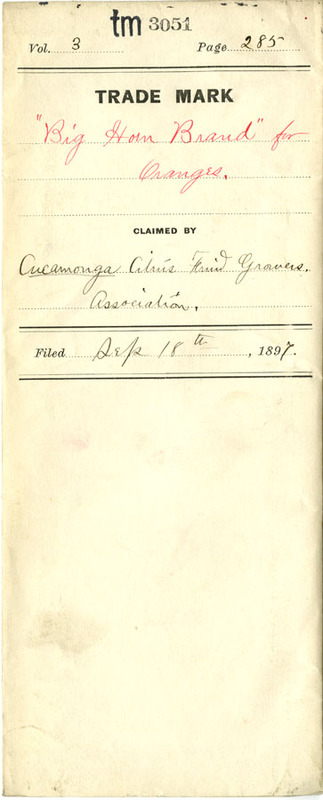 tm 3051
Vol. 3 Page 285
TRADE MARK
"Big Horn Brand" for
Oranges.
CLAIMED BY
Cucamonga Citrus Fruit Growers.
Association.
Filed Sep 18th, 1897.